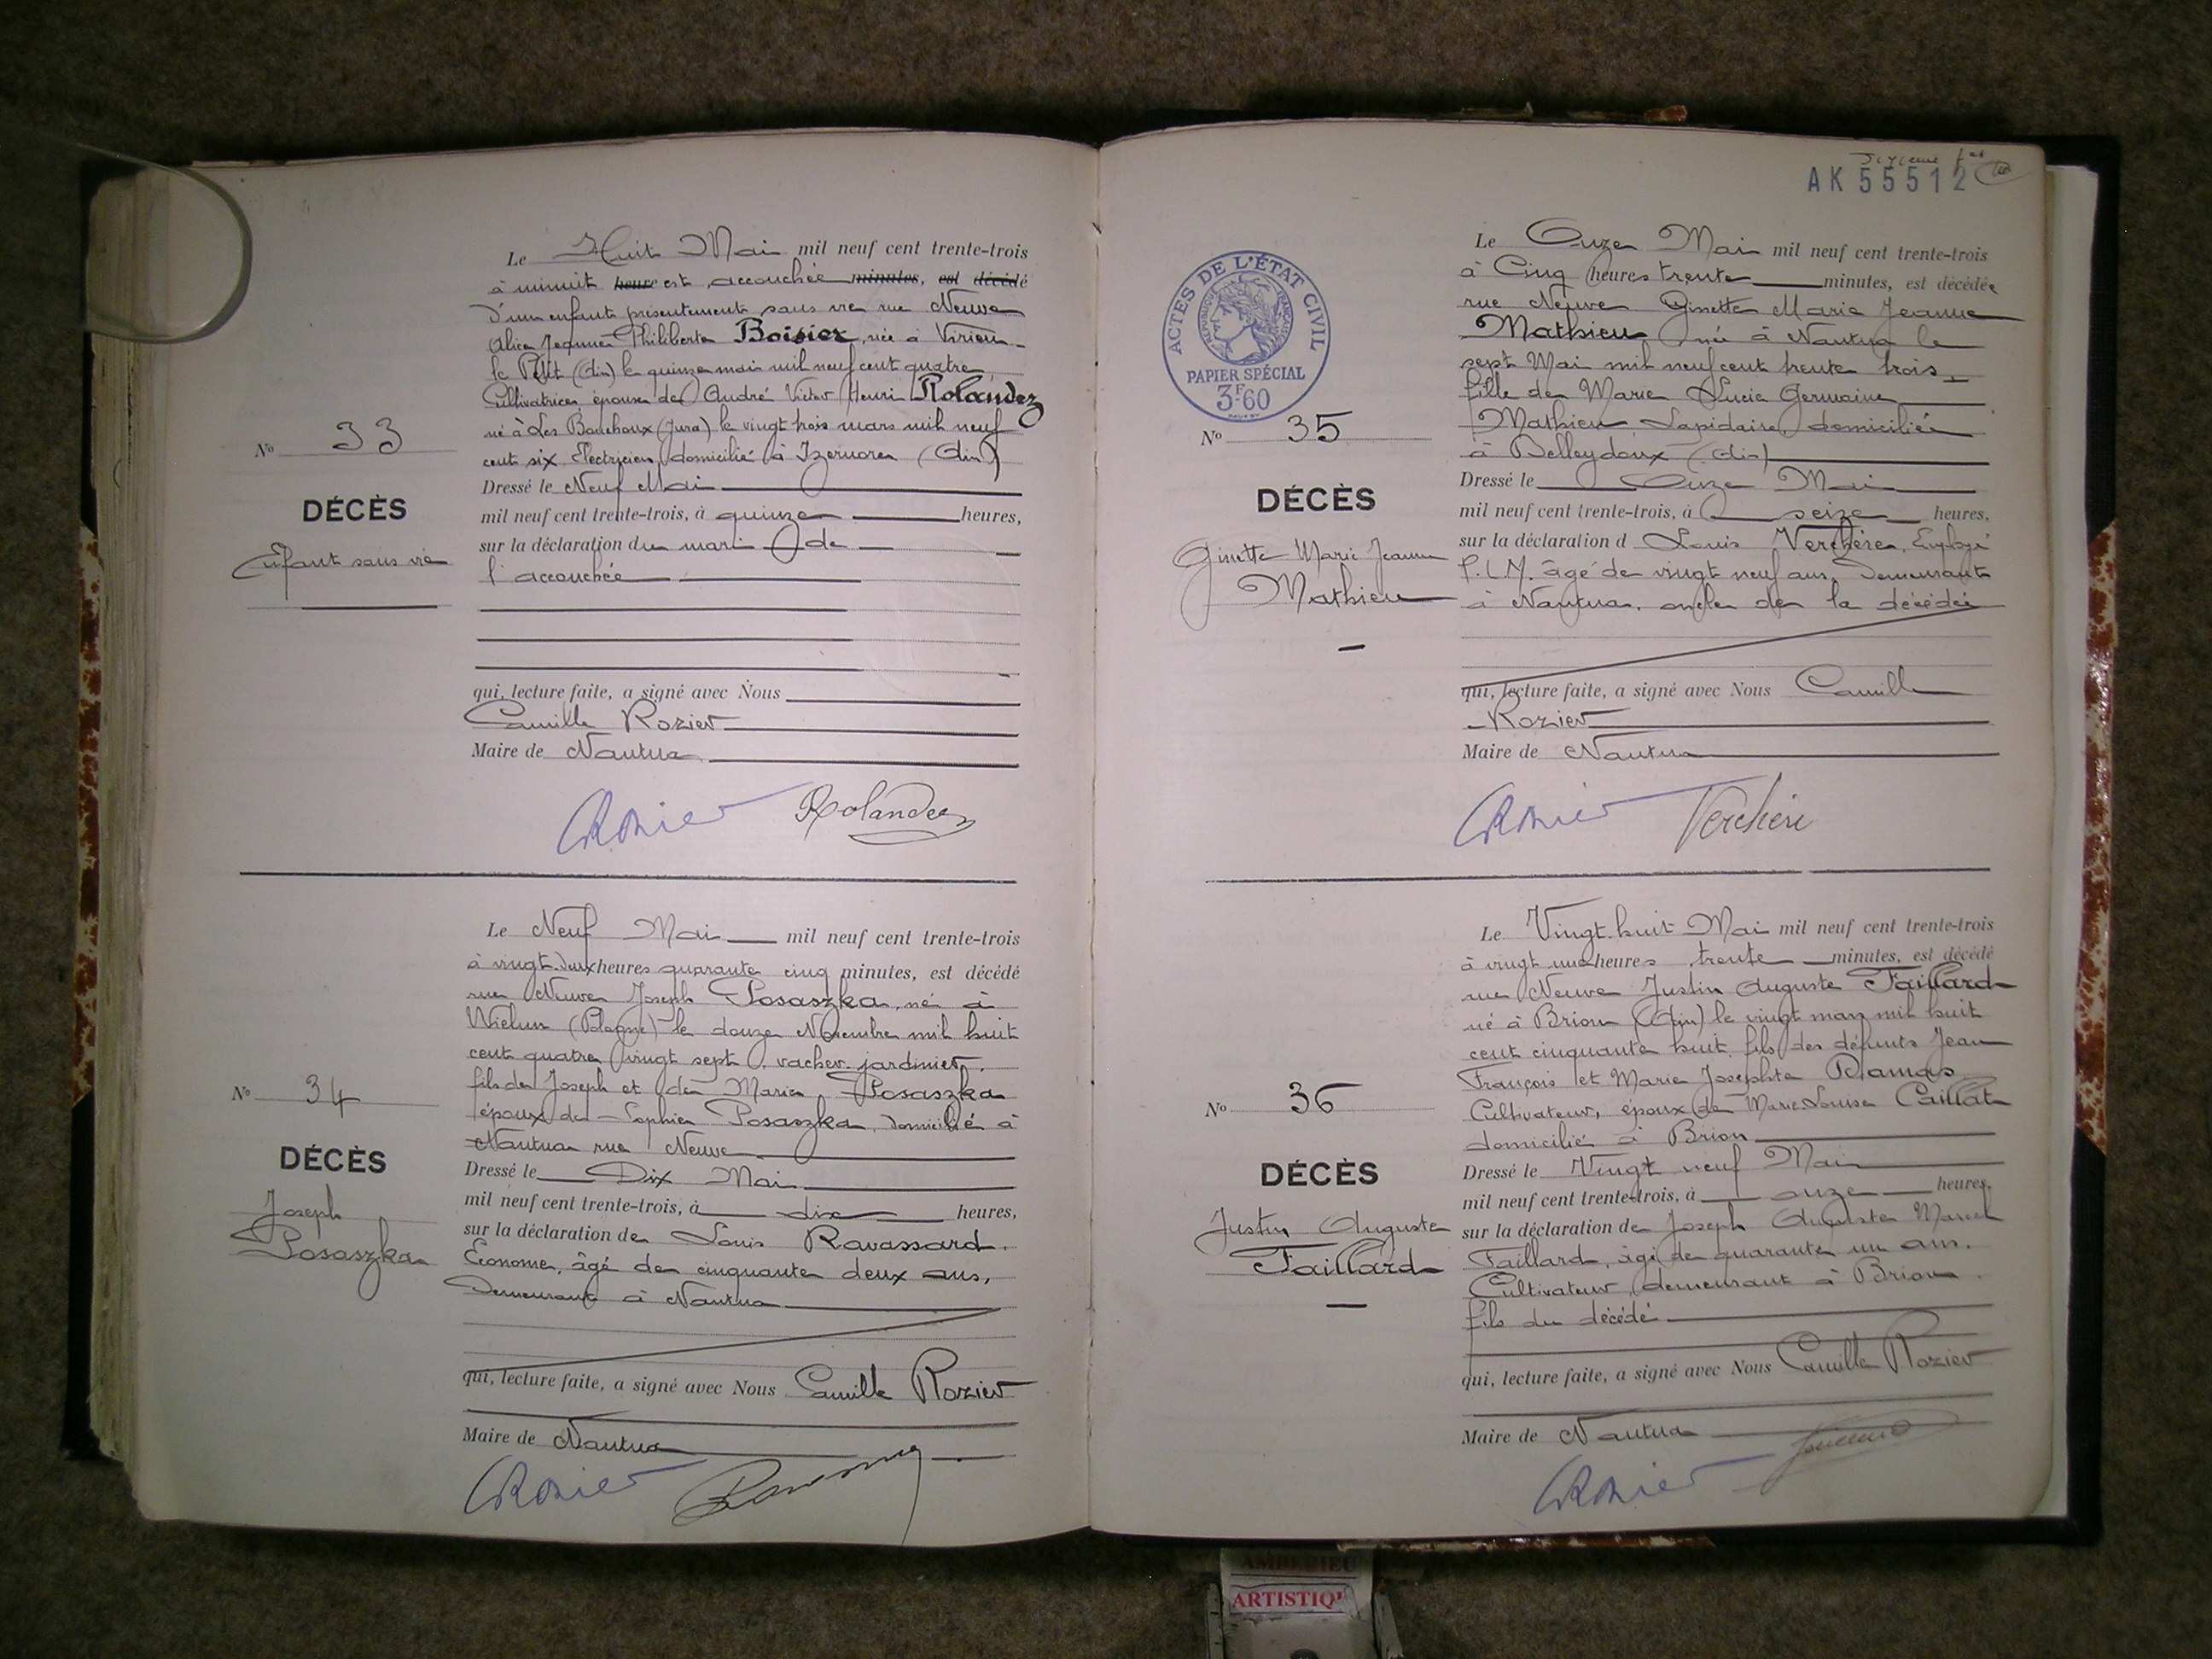 Le Huit Mai mil neuf cent trente-trois
à minuit heure est accouchée minutes, est décédé
d'un enfant présentement sans vie rue Neuve
Alice Jeanne Philiberte Boisier, née à Virieu-
le Petit (Ain) le quinze mai mil neuf cent quatre,
Cultivatrice, épouse de André Victor Henri Rolandez
né à Les Bouchoux (Jura) le vingt trois mars mil neuf
cent six Electricien, domicilié à Izernore (Ain)
No 33
DÉCÈS
Enfant sans vie
Dressé le Neuf Mai
mil neuf cent trente-trois, à quinze heures,
sur la déclaration du mari de
l'accouchée
qui, lecture faite, a signé avec Nous
Camille Rozier
Maire de Nantua
CRozier Rolandez
Le Neuf Mai mil neuf cent trente-trois
à vingt-deux heures quarante cinq minutes, est décédé
rue Neuve Joseph Posaszka, né à
Wielun (Pologne) le douze Novembre mil huit
cent quatre vingt sept, vacher-jardinier,
fils de Joseph et de Marie Posaszka
époux de Sophie Posaszka, domicilié à
Nantua rue Neuve
No 34
DÉCÈS
Joseph
Posaszka
Dressé le Dix Mai
mil neuf cent trente-trois, à dix heures,
sur la déclaration de Louis Ravassard.
Econome, âgé de cinquante deux ans,
Demeurant à Nantua
qui, lecture faite, a signé avec Nous Camille Rozier
Maire de Nantua
CRozier
AK 55512
ACTES DE L'ÉTAT CIVIL
RÉPUBLIQUE FRANÇAISE
PAPIER SPÉCIAL
3F60
Le Onze Mai mil neuf cent trente-trois
à Cinq heures trente minutes, est décédée
rue Neuve Ginette Marie Jeanne
Mathieu née à Nantua le
sept Mai mil neuf cent trente trois
fille de Marie Lucie Germaine
Mathieu Lapidaire, domiciliée
à Belleydoux (Ain)
No 35
DÉCÈS
Ginette Marie Jeanne
Mathieu
Dressé le Onze Mai
mil neuf cent trente-trois, à seize heures,
sur la déclaration d Louis Verchère, Employé
P.L.M. âgé de vingt neuf ans, Demeurant
à Nantua, oncle de la décédée
qui, lecture faite, a signé avec Nous Camille
Rozier
Maire de Nantua
CRozier Verchère
Le Vingt-huit Mai mil neuf cent trente-trois
à vingt une heures trente minutes, est décédé
rue Neuve Justin Auguste Faillard
né à Brion (Ain) le vingt mars mil huit
cent cinquante huit, fils des défunts Jean
François et Marie Josephte Ramas
Cultivateur, époux de Marie-Louise Caillat
domicilié à Brion
No 36
DÉCÈS
Justin Auguste
Faillard
Dressé le Vingt neuf Mai
mil neuf cent trente-trois, à onze heures,
sur la déclaration de Joseph Auguste Marcel
Faillard, âgé de quarante un ans,
Cultivateur, demeurant à Brion,
fils du décédé
qui, lecture faite, a signé avec Nous Camille Rozier
Maire de Nantua
CRozier
AMBERIEU
ARTISTIQ